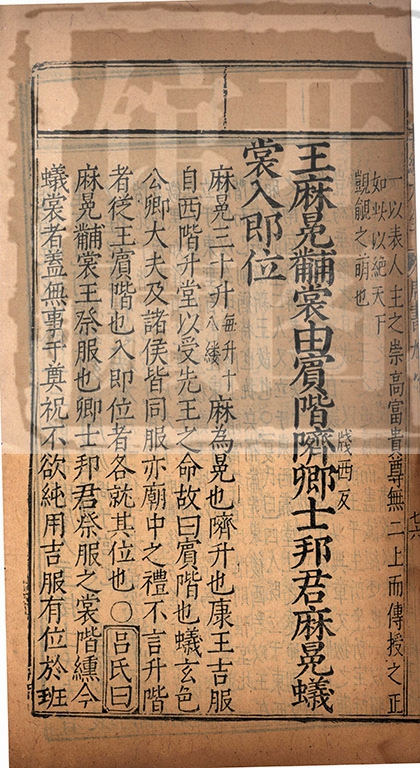 一以表人主之崇高富貴尊無二上而傳授之正
如此以絶天下
覬覦之萌也
王麻冕黼裳由賓階隮牋西反卿士邦君麻冕蟻
裳入即位
麻冕三十升每升十八縷麻為冕也隮升也康王吉服
自西階升堂以受先王之命故曰賓階也蟻玄色
公卿大夫及諸侯皆同服亦廟中之禮不言升階
者從王賓階也入即位者各就其位也〇呂氏曰
麻冕黼裳王祭服也卿士邦君祭服之裳階纁今
蟻裳者蓋無事乎奠祝不欲純用吉服有位於班